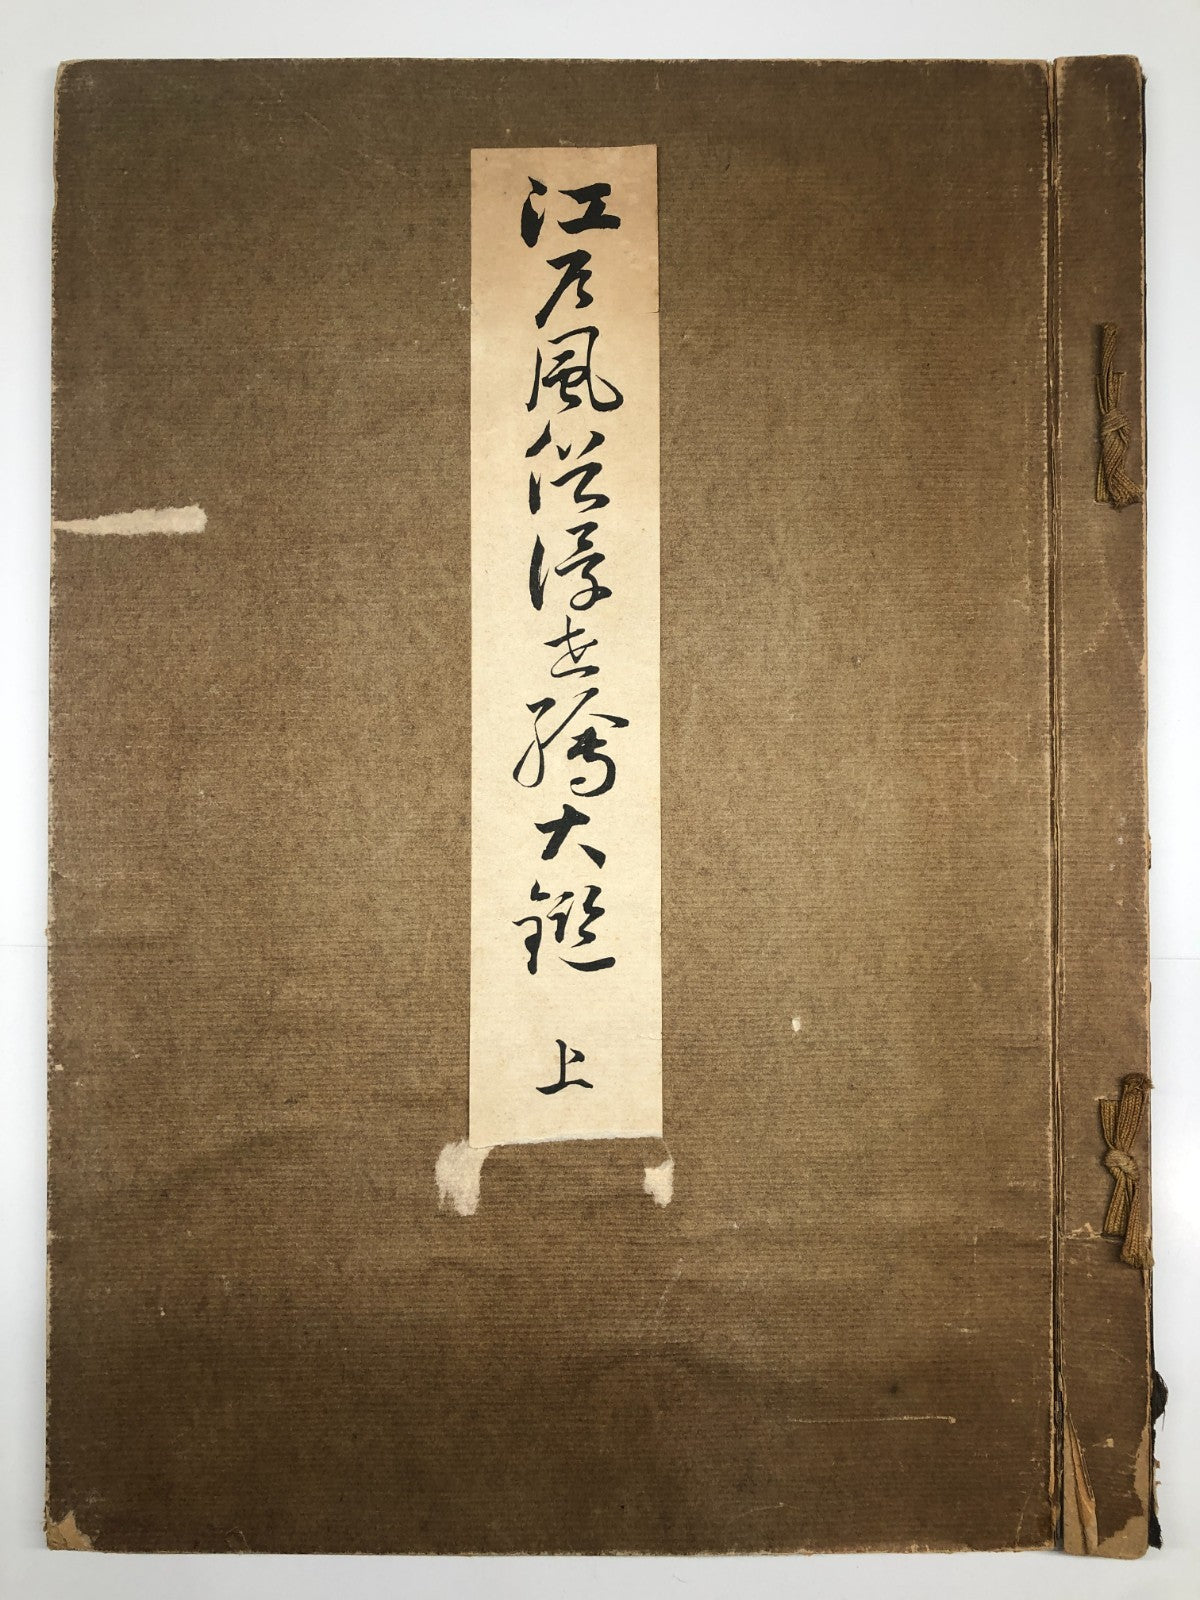 江戸風俗浮世繪大鑑 上